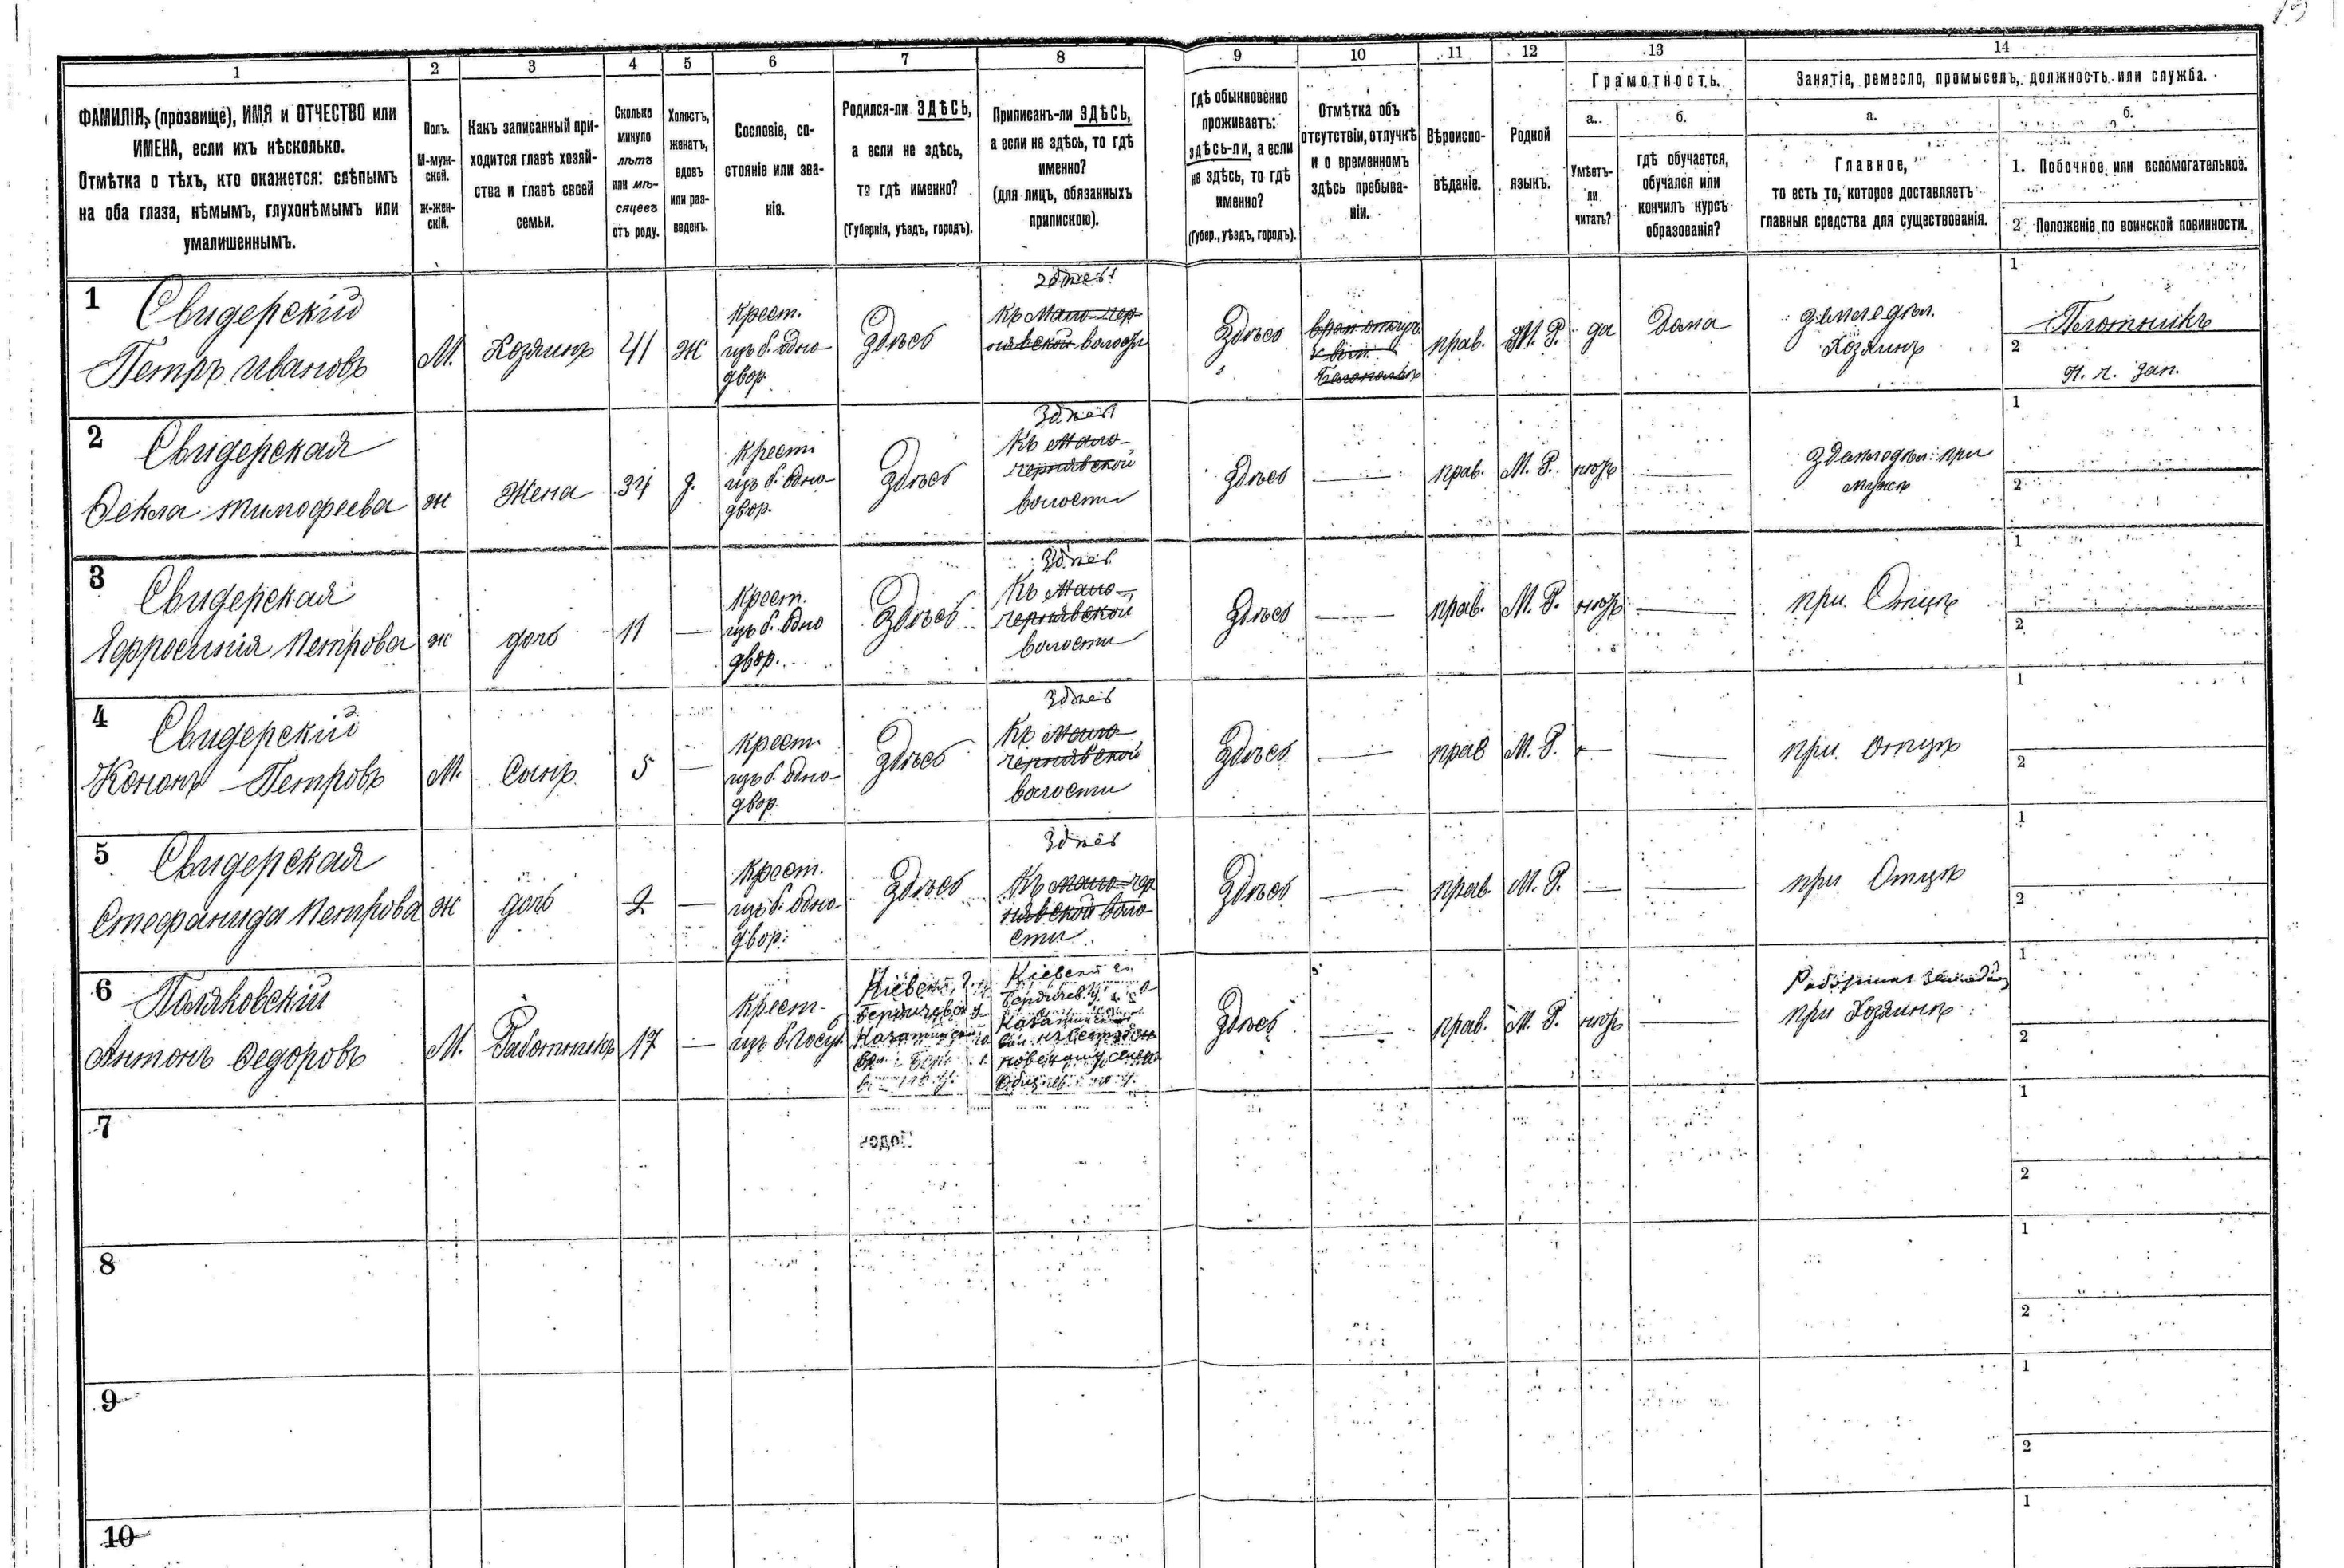 1 2 3 4 5 6 7 8 9 10 11 12 13 14
ФАМИЛІЯ, (прозвище), ИМЯ и ОТЧЕСТВО или
ИМЕНА, если ихъ нѣсколько.
Отмѣтка о тѣхъ, кто окажется: слѣпымъ
на оба глаза, нѣмымъ, глухонѣмымъ или
умалишеннымъ.
Полъ.
М-муж-
ской.
Ж-жен-
скій.
Какъ записанный при-
ходится главѣ хозяй-
ства и главѣ своей
семьи.
Сколько
минуло
лѣтъ
или мѣ-
сяцевъ
отъ роду.
Холостъ,
женатъ,
вдовъ
или раз-
веденъ.
Сословіе, со-
стояніе или зва-
ніе.
Родился-ли ЗДѢСЬ,
а если не здѣсь,
то гдѣ именно?
(Губернія, уѣздъ, городъ).
Приписанъ-ли ЗДѢСЬ,
а если не здѣсь, то гдѣ
именно?
(для лицъ, обязанныхъ
припискою).
Гдѣ обыкновенно
проживаетъ:
здѣсь-ли, а если
не здѣсь, то гдѣ
именно?
(Губер., уѣздъ, городъ).
Отмѣтка объ
отсутствіи, отлучкѣ
и о временномъ
здѣсь пребыва-
ніи.
Вѣроиспо-
вѣданіе.
Родной
языкъ.
Грамотность.
а.
Умѣетъ-
ли
читать?
б.
гдѣ обучается,
обучался или
кончилъ курсъ
образованія?
Занятіе, ремесло, промыселъ, должность или служба.
а.
Главное,
то есть то, которое доставляетъ
главныя средства для существованія.
б.
1. Побочное или вспомогательное.
2 Положеніе по воинской повинности.
1
Свидерскій
Петръ Ивановъ
М.
Хозяинъ
41
ж
крест.
изъ б. одно-
двор.
Здѣсь
здѣсь
Къ Мало-чер-
нявской волости
Здѣсь
прав.
М. Р.
да
Дома
земледѣл.
Хозяинъ
1
Плотникъ
2
Н. ч. зап.
2
Свидерская
Ѳекла Тимофеева
ж
Жена
34
з.
крест.
изъ б. одно-
двор.
Здѣсь
Здѣсь
Къ Мало-
чернявской
волости
Здѣсь
прав.
М. Р.
нѣтъ
земледѣл. при
мужѣ
1
2
3
Свидерская
Петрова
ж
дочь
11
крест.
изъ б. одно
двор.
Здѣсь
Здѣсь
Къ Мало-
чернявской
волости
Здѣсь
прав.
М. Р.
нѣтъ
при Отцѣ
1
2
4
Свидерскій
Кононъ Петровъ
М.
Сынъ
5
крест.
изъ б. одно-
двор.
Здѣсь
Здѣсь
Къ Мало
чернявской
волости
Здѣсь
прав
М. Р.
при отцѣ
1
2
5
Свидерская
Стефанида Петрова
ж
дочь
2
крест.
изъ б. одно-
двор.
Здѣсь
Здѣсь
Къ мало-чер
нявской воло
сти
Здѣсь
прав.
М. Р.
при Отцѣ
1
2
6
Поляковскій
Антонъ Ѳедоровъ
М.
Работникъ
17
крест.
изъ б. Госуд
Кіевск.
Кіевской
Бердичев. у.
Здѣсь
прав.
М. Р.
нѣтъ
при Хозяинѣ
1
2
7
1
2
8
1
2
9
1
2
10
1